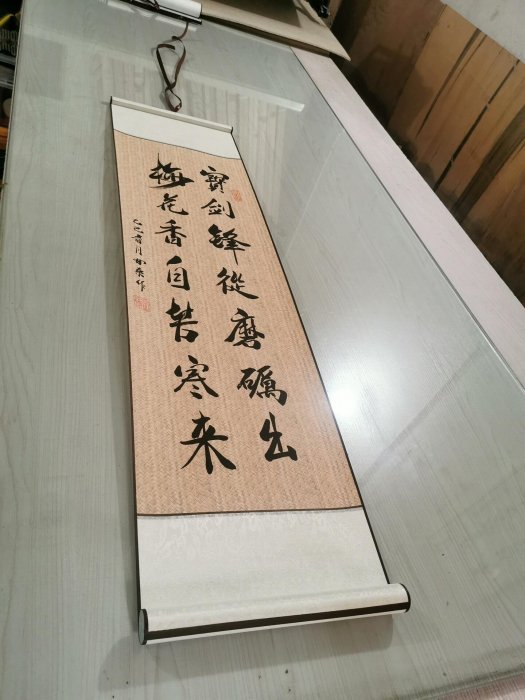 寶劍鋒從磨礪出
梅花香自苦寒来
乙巳春月